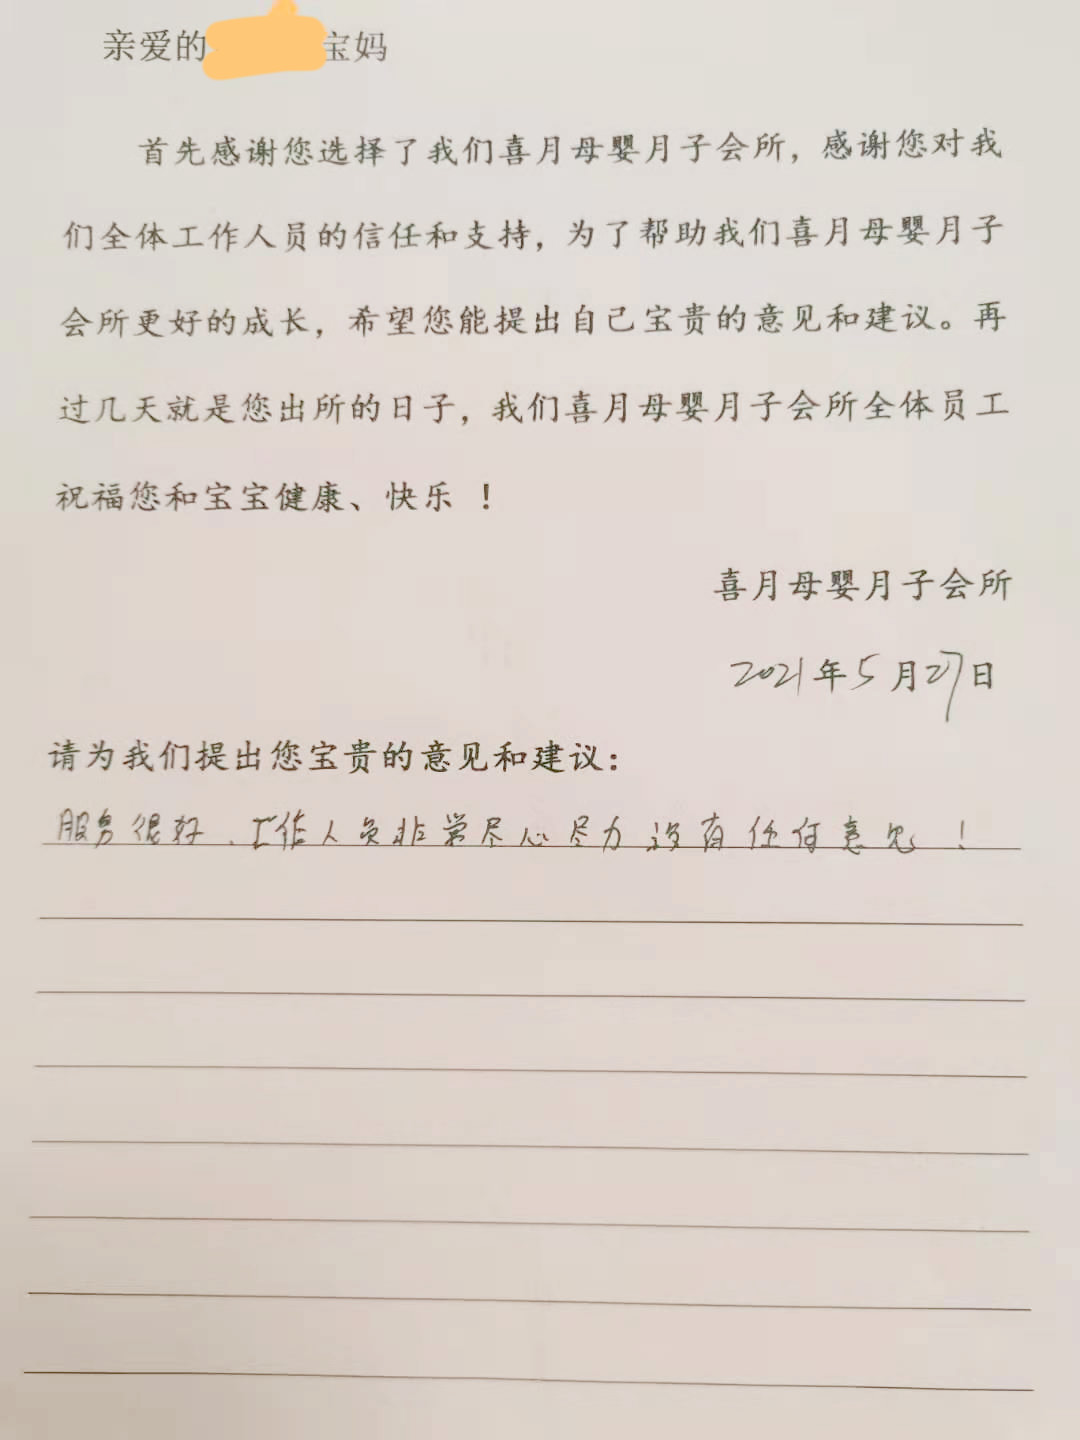 亲爱的 宝妈
首先感谢您选择了我们喜月母婴月子会所，感谢您对我
们全体工作人员的信任和支持，为了帮助我们喜月母婴月子
会所更好的成长，希望您能提出自己宝贵的意见和建议。再
过几天就是您出所的日子，我们喜月母婴月子会所全体员工
祝福您和宝宝健康、快乐 ！
喜月母婴月子会所
2021年5月27日
请为我们提出您宝贵的意见和建议：
服务很好、工作人员非常尽心尽力没有任何意见！